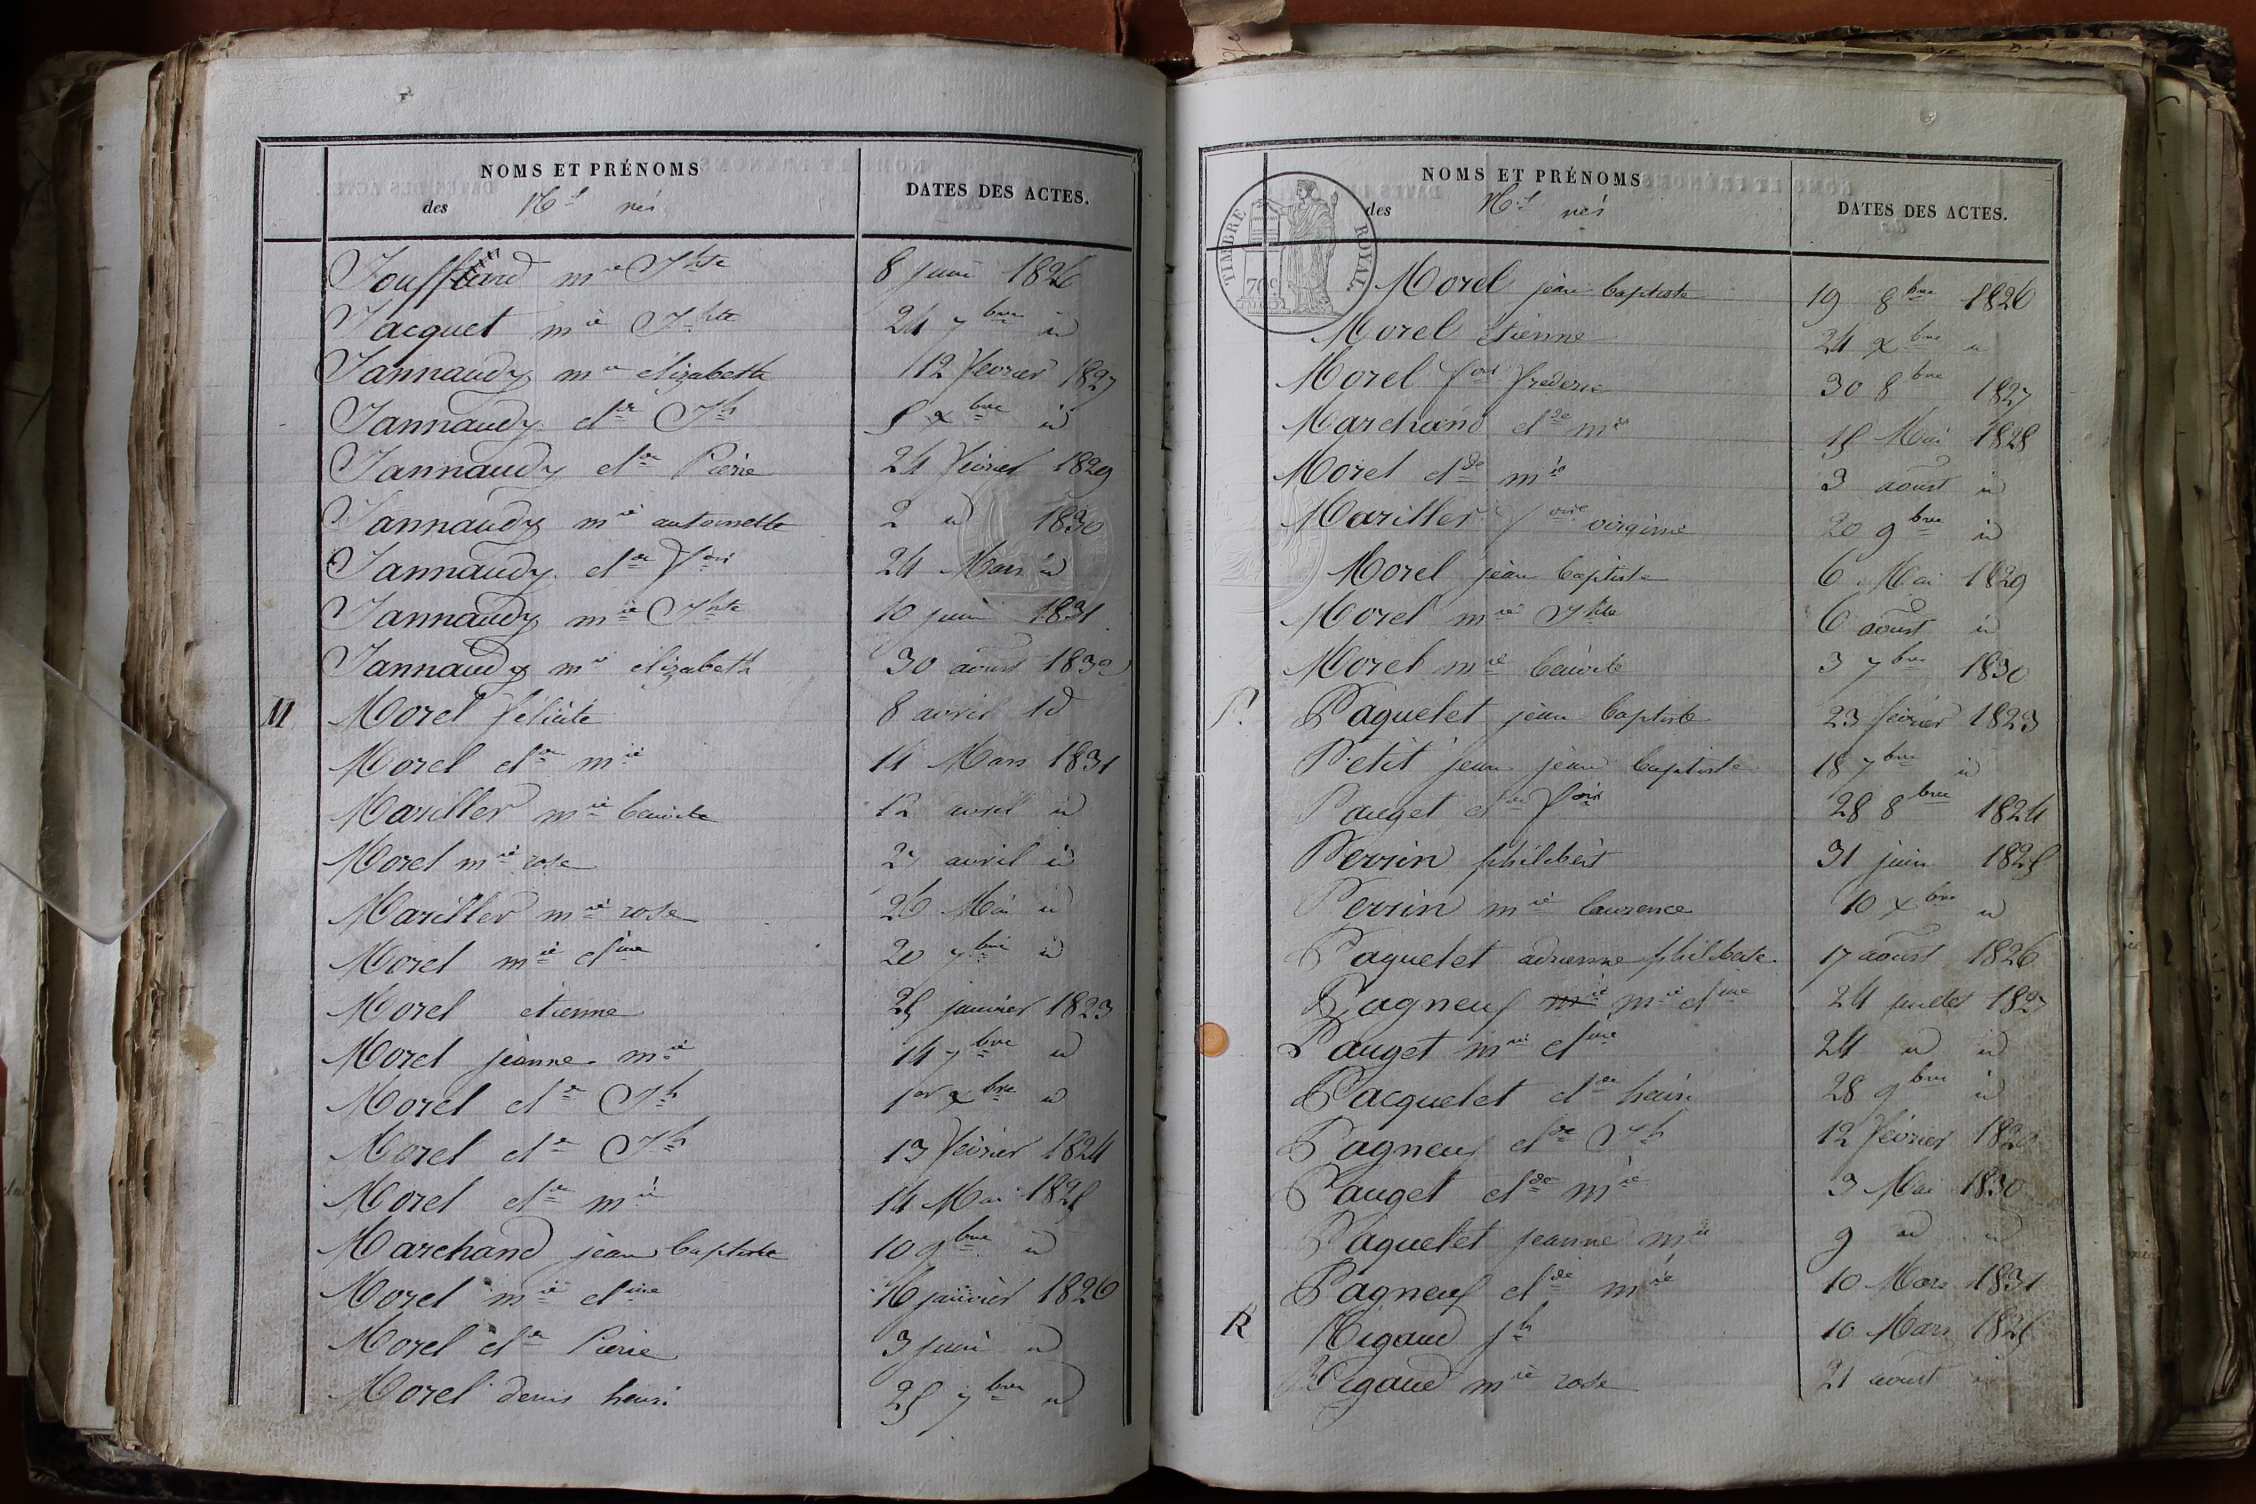 NOMS ET PRÉNOMS
des nés
DATES DES ACTES.
Jouffland mie Jhte 8 juin 1826
Jacquet mie Jhte 24 7bre id
Jannaudy mie élizabeth 12 février 1827
Jannaudy cl Jh 5 xbre id
Jannaudy cl Pierre 24 février 1829
Jannaudy mie antoinette 2 id 1830
Jannaudy cl fois 24 Mars id
Jannaudy mie Jhte 10 juin 1831
Jannaudy mie élizabeth 30 aoust 1832
M Morel félicité 8 avril id
Morel cl mie 14 Mars 1831
Mariller mie 12 avril id
Morel mie rose 2 avril id
Mariller mie rose 26 Mai id
Morel mie cl 20 7bre id
Morel étienne 25 janvier 1823
Morel jeanne mie 14 7bre id
Morel cl Jh 1er xbre id
Morel cl Jh 13 février 1824
Morel cl mie 14 Mai 1825
Marchand jean baptiste 10 9bre id
Morel mie cl 16 janvier 1826
Morel cl Pierre 3 juin id
Morel denis henri 25 7bre id
NOMS ET PRÉNOMS
des nés
DATES DES ACTES.
TIMBRE ROYAL
Morel jean baptiste 19 8bre 1826
Morel étienne 24 xbre id
Morel fois frederic 30 8bre 1827
Marchand cl mie 15 Mai 1828
Morel cl mie 3 aoust id
Mariller foise virginie 20 9bre id
Morel jean baptiste 6 Mai 1829
Morel mie Jhte 6 aoust id
Morel mie 3 7bre 1830
P. Paquelet jean baptiste 23 février 1823
Petit jean jean baptiste 18 7bre id
Pauget cl fois 28 8bre 1824
Perrin philibert 31 juin 1825
Perrin mie laurence 10 xbre id
Paquelet adrienne philiberte 17 aoust 1826
Pagneuf mie mie cl 24 juillet 1827
Pauget mie cl 24 id id
Pacquelet cl henri 28 9bre id
Pagneuf cl Jh 12 février
Pauget cl mie 3 Mai 1830
Paquelet jeanne mie 9 id id
Pagneuf cl mie 10 Mars 1831
R Rigaud jh 10 Mars 1825
Rigaud mie rose 21 aoust